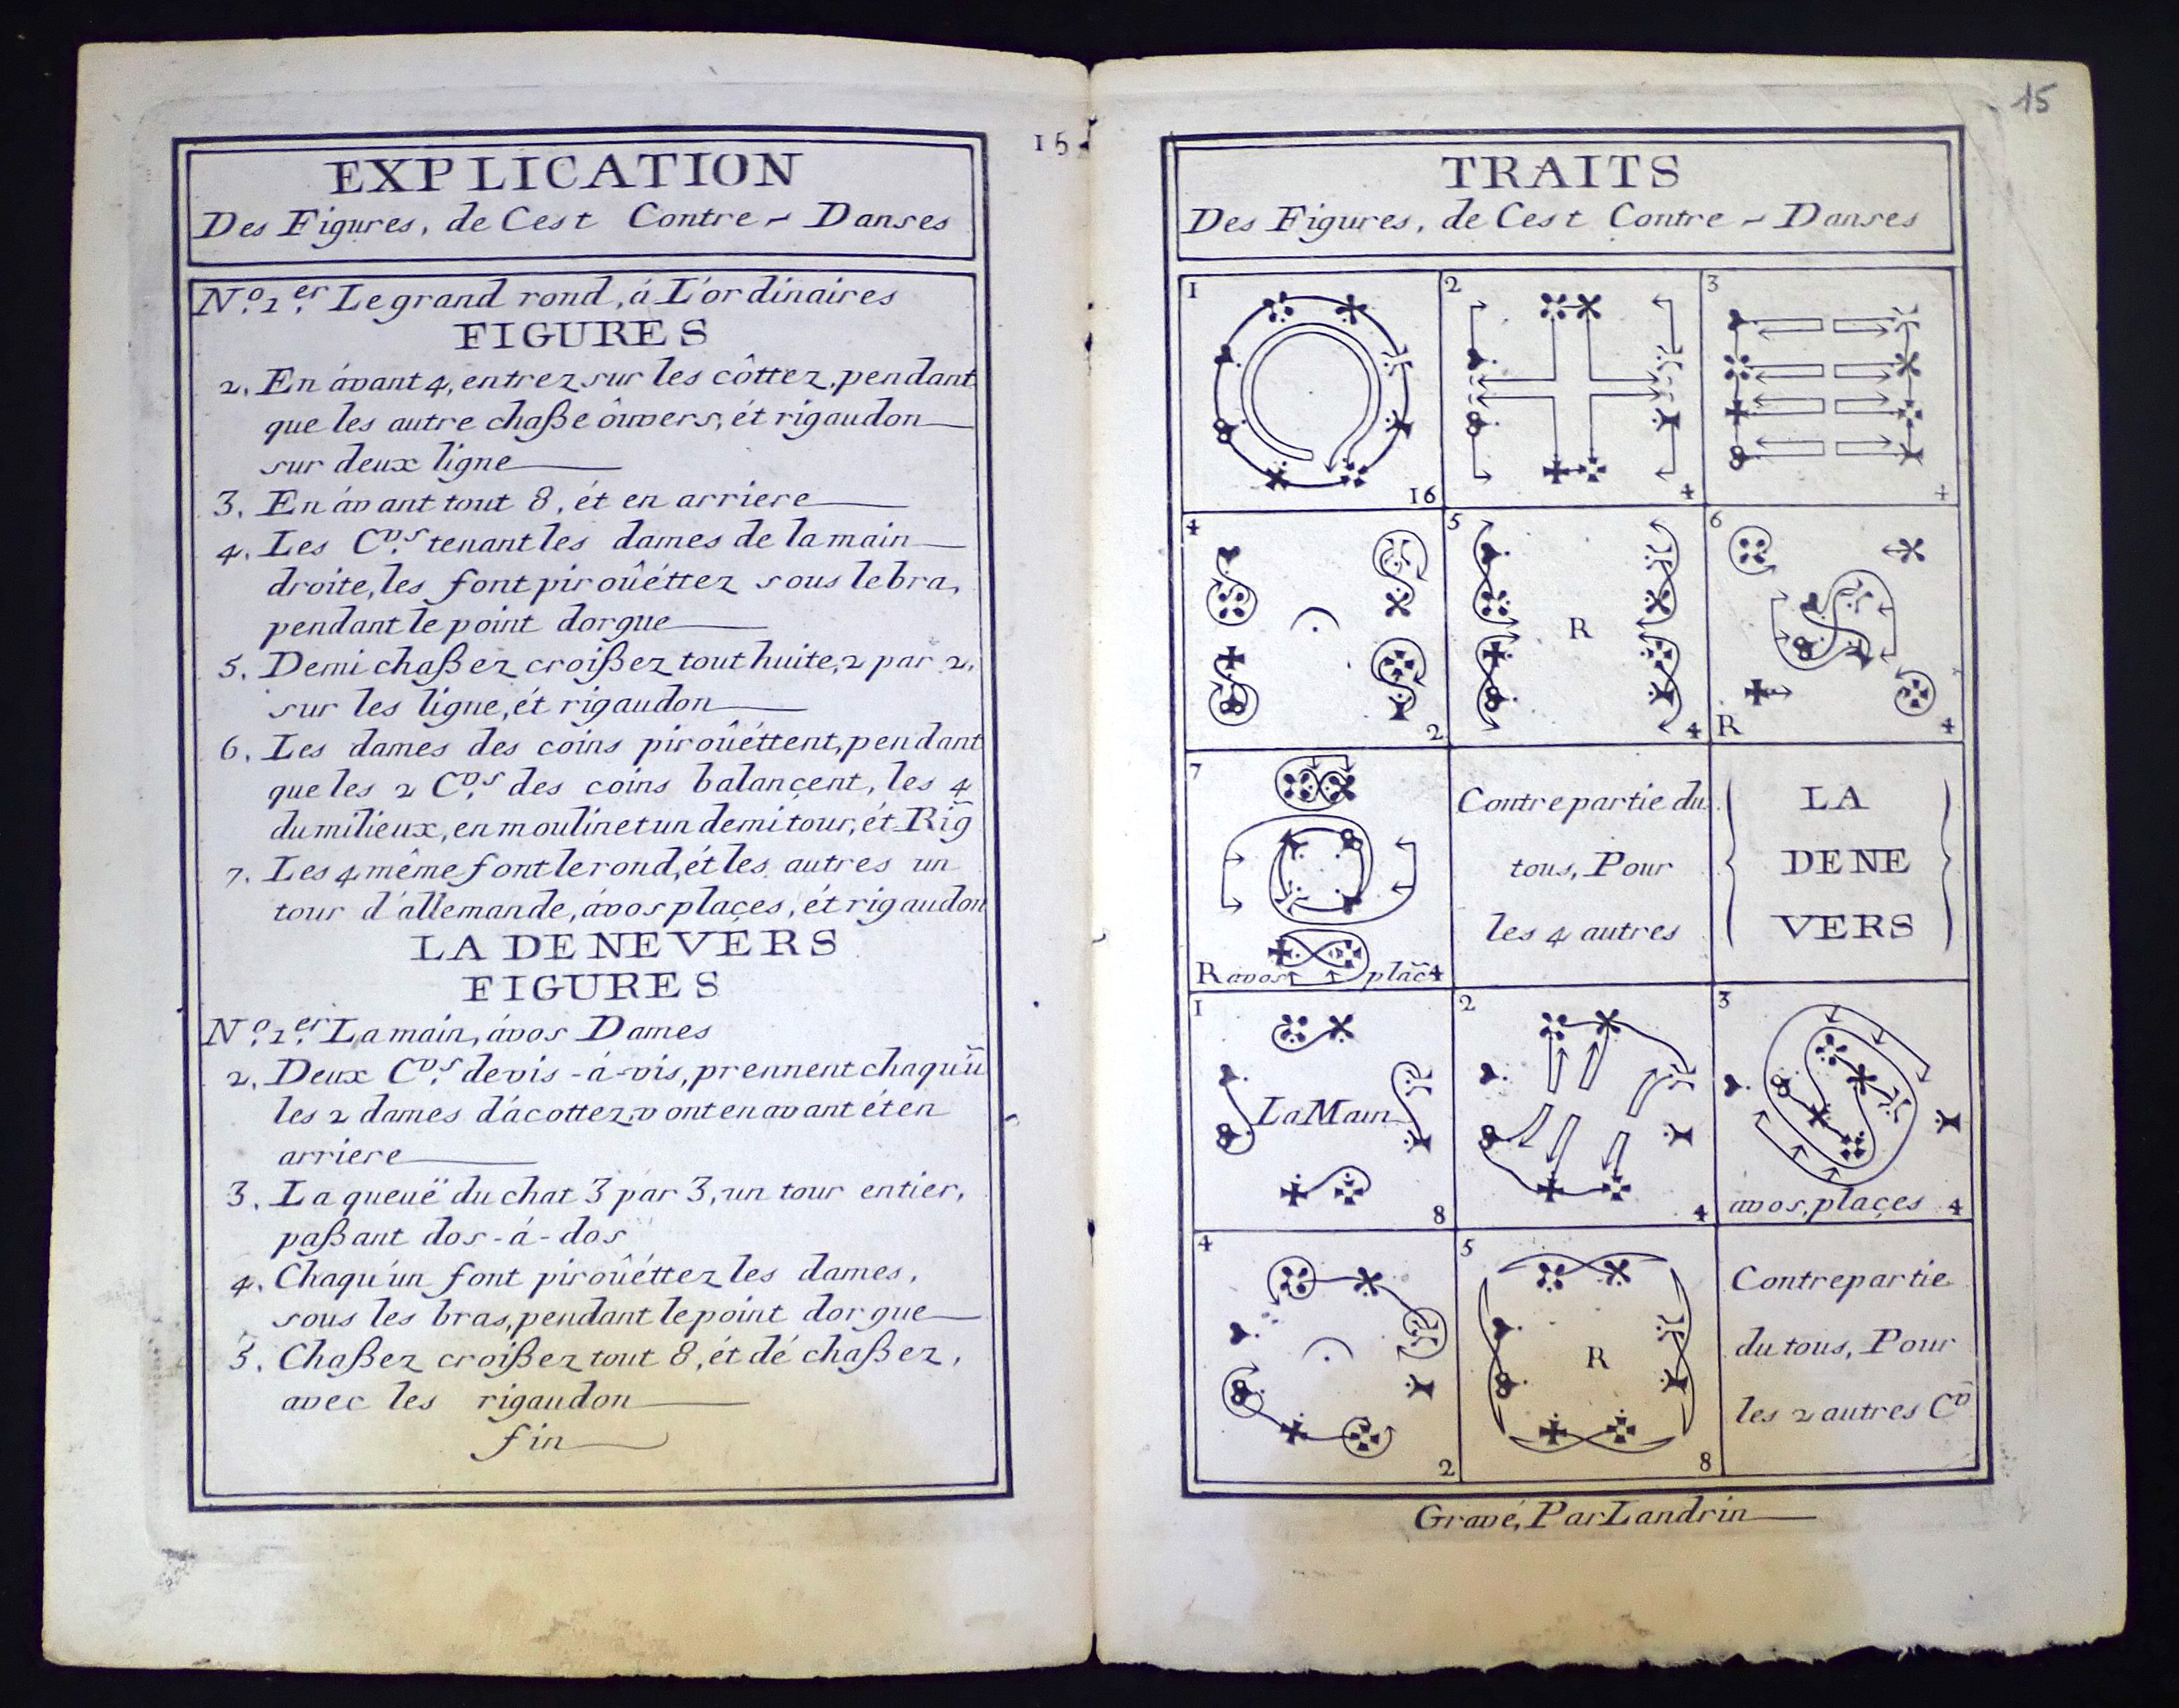 EXPLICATION
Des Figures, de Cest Contre - Danses
N.º 1.er Le grand rond, á L'ordinaires
FIGURES
2. En ávant 4, entrez sur les côttez, pendant
que les autre chaße ôuvers, ét rigaudon
sur deux ligne
3. En ávant tout 8, ét en arriere
4. Les C.ᴰˢ tenant les dames de la main
droite, les font piroûéttez sous le bra,
pendant le point dorgue
5. Demi chaßez croißez tout huite, 2 par 2,
sur les ligne, ét rigaudon
6. Les dames des coins piroûéttent, pendant
que les 2 C.ᴰˢ des coins balançent, les 4
du milieux, en moulinet un demi tour, ét Rig̃
7. Les 4 même font le rond, ét les autres un
tour d'allemande, ávos plaçes, ét rigaudon
LA DENEVERS
FIGURES
N.º 1.er La main, ávos Dames
2. Deux C.ᴰˢ devis-á-vis, prennent chaqu'ũ
les 2 dames dácottez, vont en avant ét en
arriere
3. La queuë du chat 3 par 3, un tour entier,
paßant dos-á-dos
4. Chaqu'un font piroûéttez les dames,
sous les bras, pendant le point dorgue
5. Chaßez croißez tout 8, ét dé chaßez,
avec les rigaudon
fin
15
15
TRAITS
Des Figures, de Cest Contre - Danses
1
16
2
4
3
4
4
2
5
R
4
6
R
4
7
R avos plac̃ 4
Contrepartie du
tous, Pour
les 4 autres
LA
DENE
VERS
1
La Main
8
2
4
3
avos, plaçes 4
4
2
5
R
8
Contrepartie
du tous, Pour
les 2 autres Cᴰ
Gravé, Par Landrin